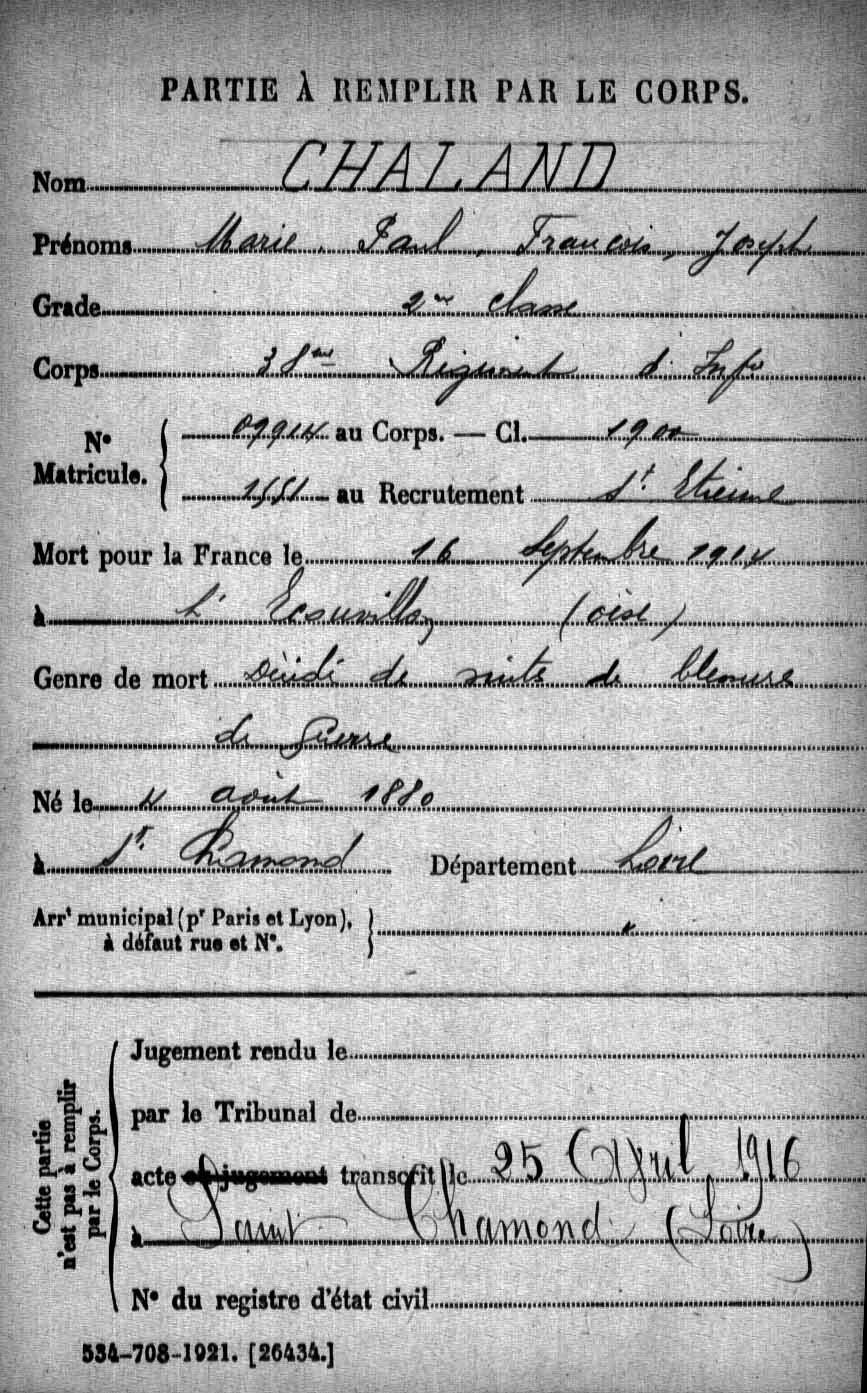 PARTIE À REMPLIR PAR LE CORPS.
Nom CHALAND
Prénoms Marie, Paul, François, Joseph
Grade 2me classe
Corps 38me Régiment d'Infie
N° Matricule. 09914 au Corps. — Cl. 1900
1551 au Recrutement St Etienne
Mort pour la France le 16 Septembre 1914
à L'Ecouvillon (oise)
Genre de mort Décédé de suites de blessures
de guerre
Né le 4 août 1880
à St Chamond Département Loire
Arrt municipal (pr Paris et Lyon),
à défaut rue et N°. "
Cette partie
n'est pas à remplir
par le Corps.
Jugement rendu le
par le Tribunal de
acte ou jugement transcrit le 25 Avril 1916
à Saint Chamond (Loire)
N° du registre d'état civil
534-708-1921. [26434.]